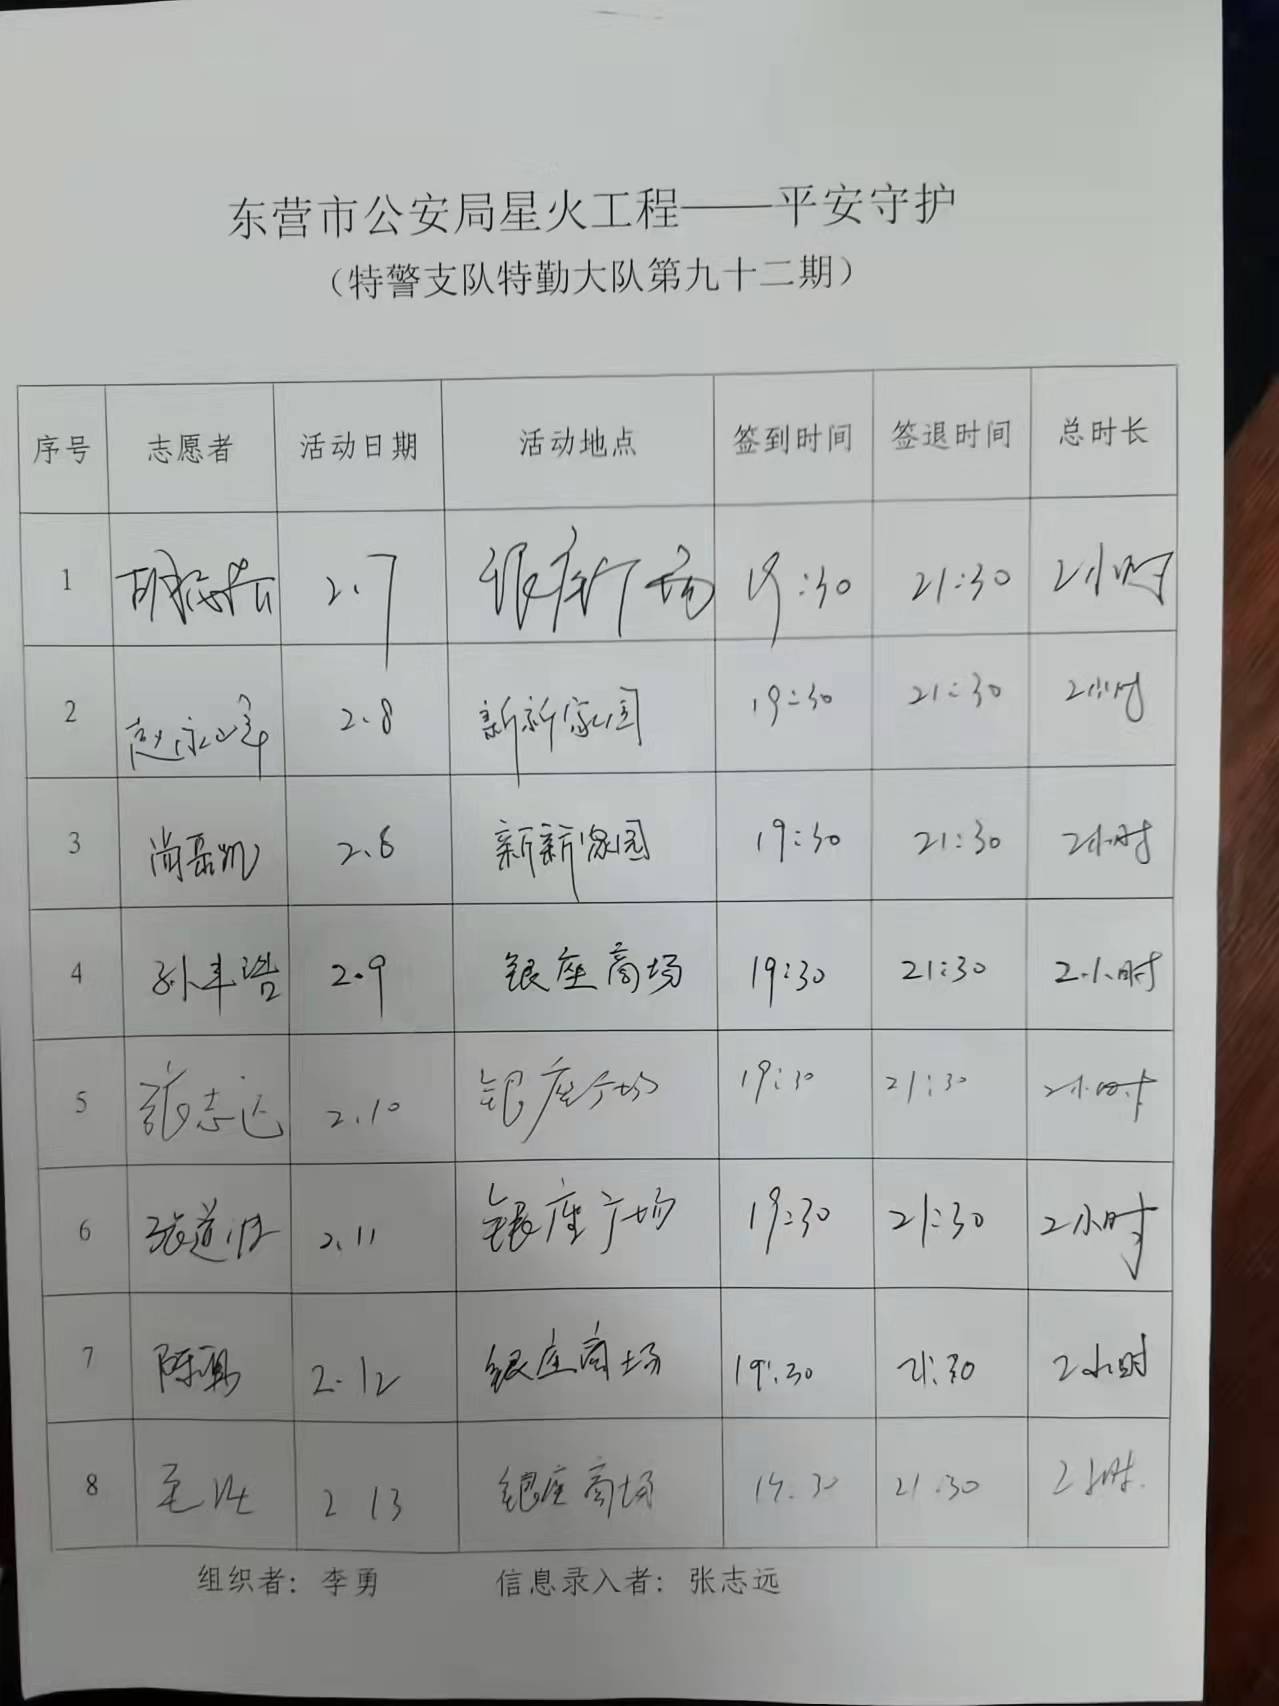 东营市公安局星火工程——平安守护
（特警支队特勤大队第九十二期）
序号 志愿者 活动日期 活动地点 签到时间 签退时间 总时长
1 2.7 银座广场 19:30 21:30 2小时
2 赵永峰 2.8 新新家园 19:30 21:30 2小时
3 尚磊凯 2.8 新新家园 19:30 21:30 2小时
4 孙丰浩 2.9 银座商场 19:30 21:30 2小时
5 张志远 2.10 银座广场 19:30 21:30 2小时
6 张道 2.11 银座广场 19:30 21:30 2小时
7 陈 2.12 银座商场 19:30 21:30 2小时
8 2 13 银座商场 19.30 21.30 2小时
组织者：李勇 信息录入者：张志远